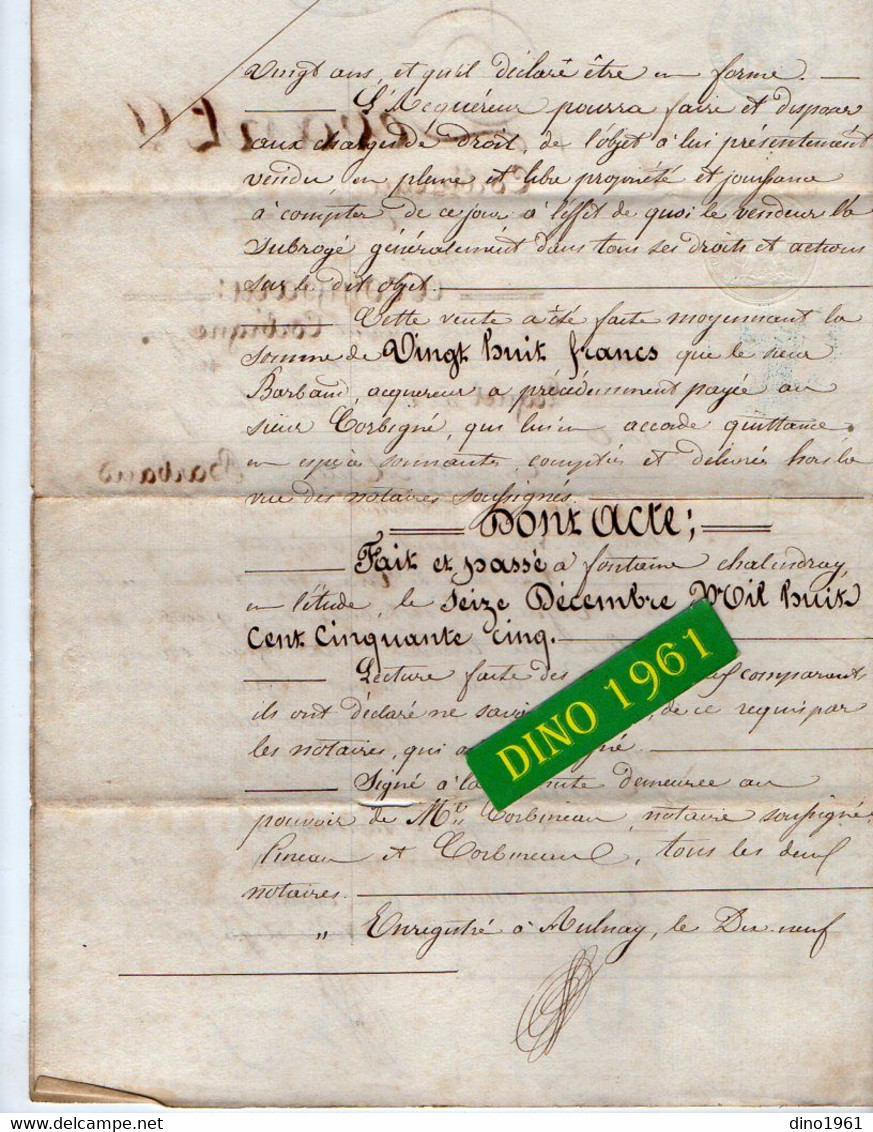 Vingt ans, et qu'il déclare être en forme.
L'Acquéreur pourra faire et disposer
aux charges de droit de l'objet à lui présentement
vendu en pleine et libre propriété et jouissance
à compter de ce jour à l'effet de quoi le vendeur l'a
subrogé généralement dans tous ses droits et actions
sur le dit objet.
Cette vente a été faite moyennant la
somme de Vingt huit francs que le sieur
Barbaud, acquereur a précédemment payée au
sieur Corbigné, qui lui en accorde quittance
en espèces sonnantes, comptées et délivrées hors la
vue des notaires soussignés.
Dont Acte;
Fait et passé à fontaine chalendray,
en l'étude, le Seize Décembre Mil huit
cent cinquante cinq.
Lecture faite des comparants
ils ont déclaré ne savoir de ce requis par
les notaires, qui
Signé à la demeurée au
pouvoir de Me Corbineau, notaire soussigné.
Pineau et Corbineau, tous les deux
notaires.
" Enregistré à Aulnay, le Dix-neuf
DINO 1961
Barbaud
dino1961